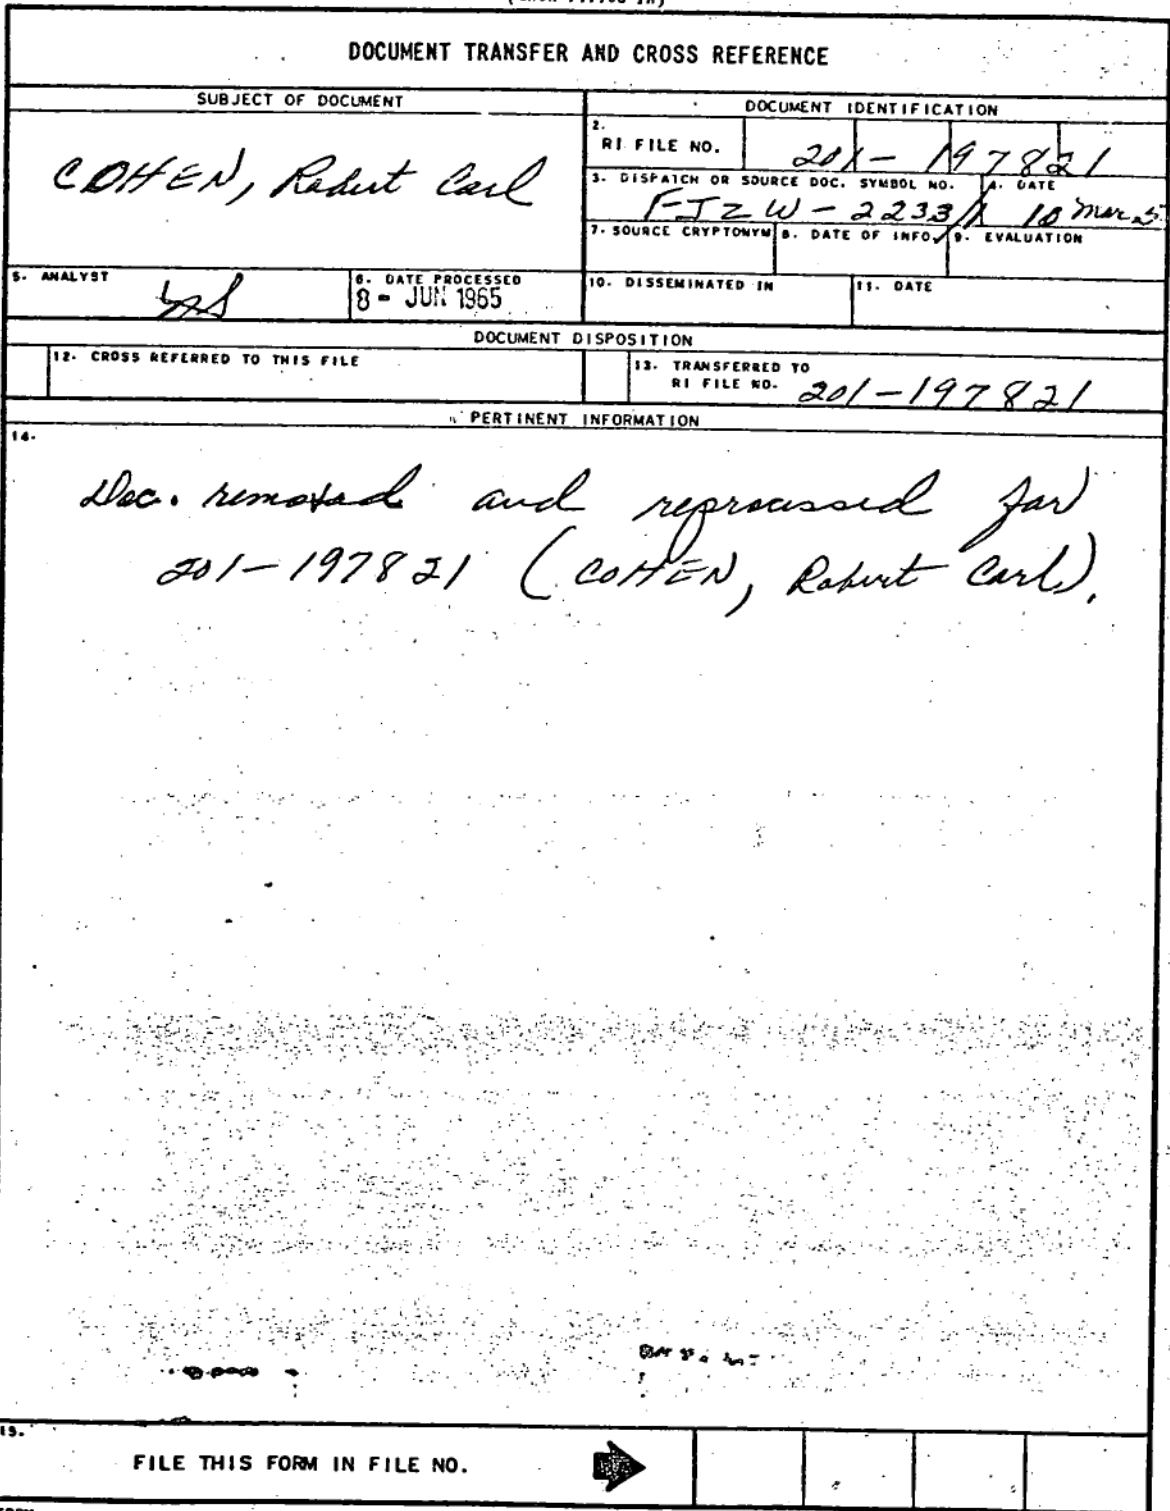 DOCUMENT TRANSFER AND CROSS REFERENCE
SUBJECT OF DOCUMENT
DOCUMENT IDENTIFICATION
COHEN, Robert Carl
2. RI FILE NO. 201-197821
3. DISPATCH OR SOURCE DOC. SYMBOL NO. 4. DATE
FJZW-2233 10 Mar 5
7. SOURCE CRYPTONYM 8. DATE OF INFO. 9. EVALUATION
5. ANALYST
6. DATE PROCESSED
8 - JUN 1965
10. DISSEMINATED IN
11. DATE
DOCUMENT DISPOSITION
12. CROSS REFERRED TO THIS FILE
13. TRANSFERRED TO
RI FILE NO. 201-197821
PERTINENT INFORMATION
14.
Doc. removed and reprocessed for
201-197821 (COHEN, Robert Carl).
15.
FILE THIS FORM IN FILE NO.